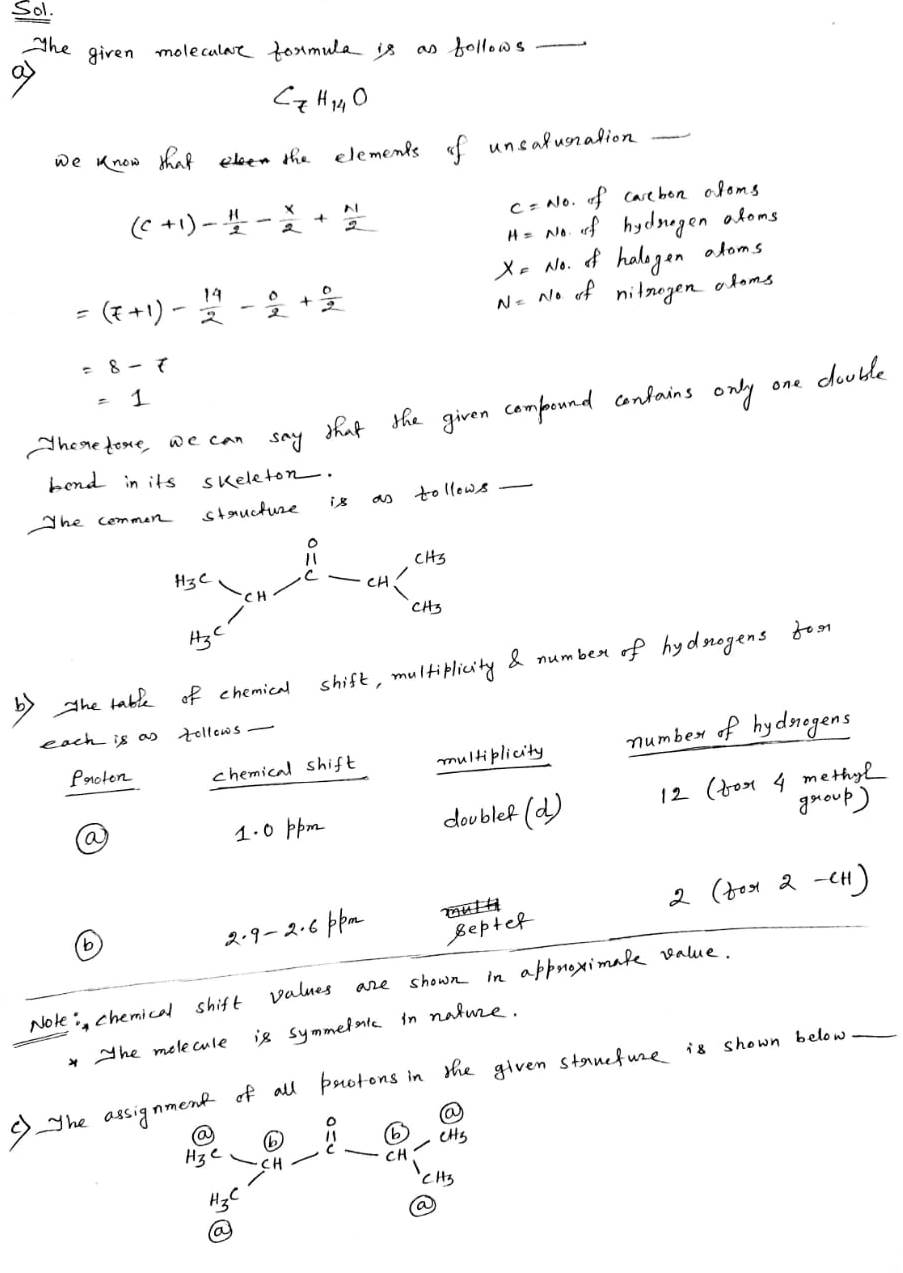 Sol.
The given molecular formula is as follows —
a)
C7 H14 O
We know that the elements of unsaturation —
(C+1) - H/2 - X/2 + N/2
C = No. of carbon atoms
H = No. of hydrogen atoms
X = No. of halogen atoms
N = No of nitrogen atoms
= (7+1) - 14/2 - 0/2 + 0/2
= 8 - 7
= 1
Therefore, we can say that the given compound contains only one double
bond in its skeleton.
The common structure is as follows —
O
H3C CH C — CH CH3
H3C CH3
b) The table of chemical shift, multiplicity & number of hydrogens for
each is as follows —
Proton chemical shift multiplicity number of hydrogens
(a) 1.0 ppm doublet (d) 12 (for 4 methyl
group)
(b) 2.9 - 2.6 ppm septet 2 (for 2 -CH)
Note:, chemical shift values are shown in approximate value.
* The molecule is symmetric in nature.
c) The assignment of all protons in the given structure is shown below —
(a) (b) O (b) (a)
H3C CH C — CH CH3
H3C CH3
(a) (a)